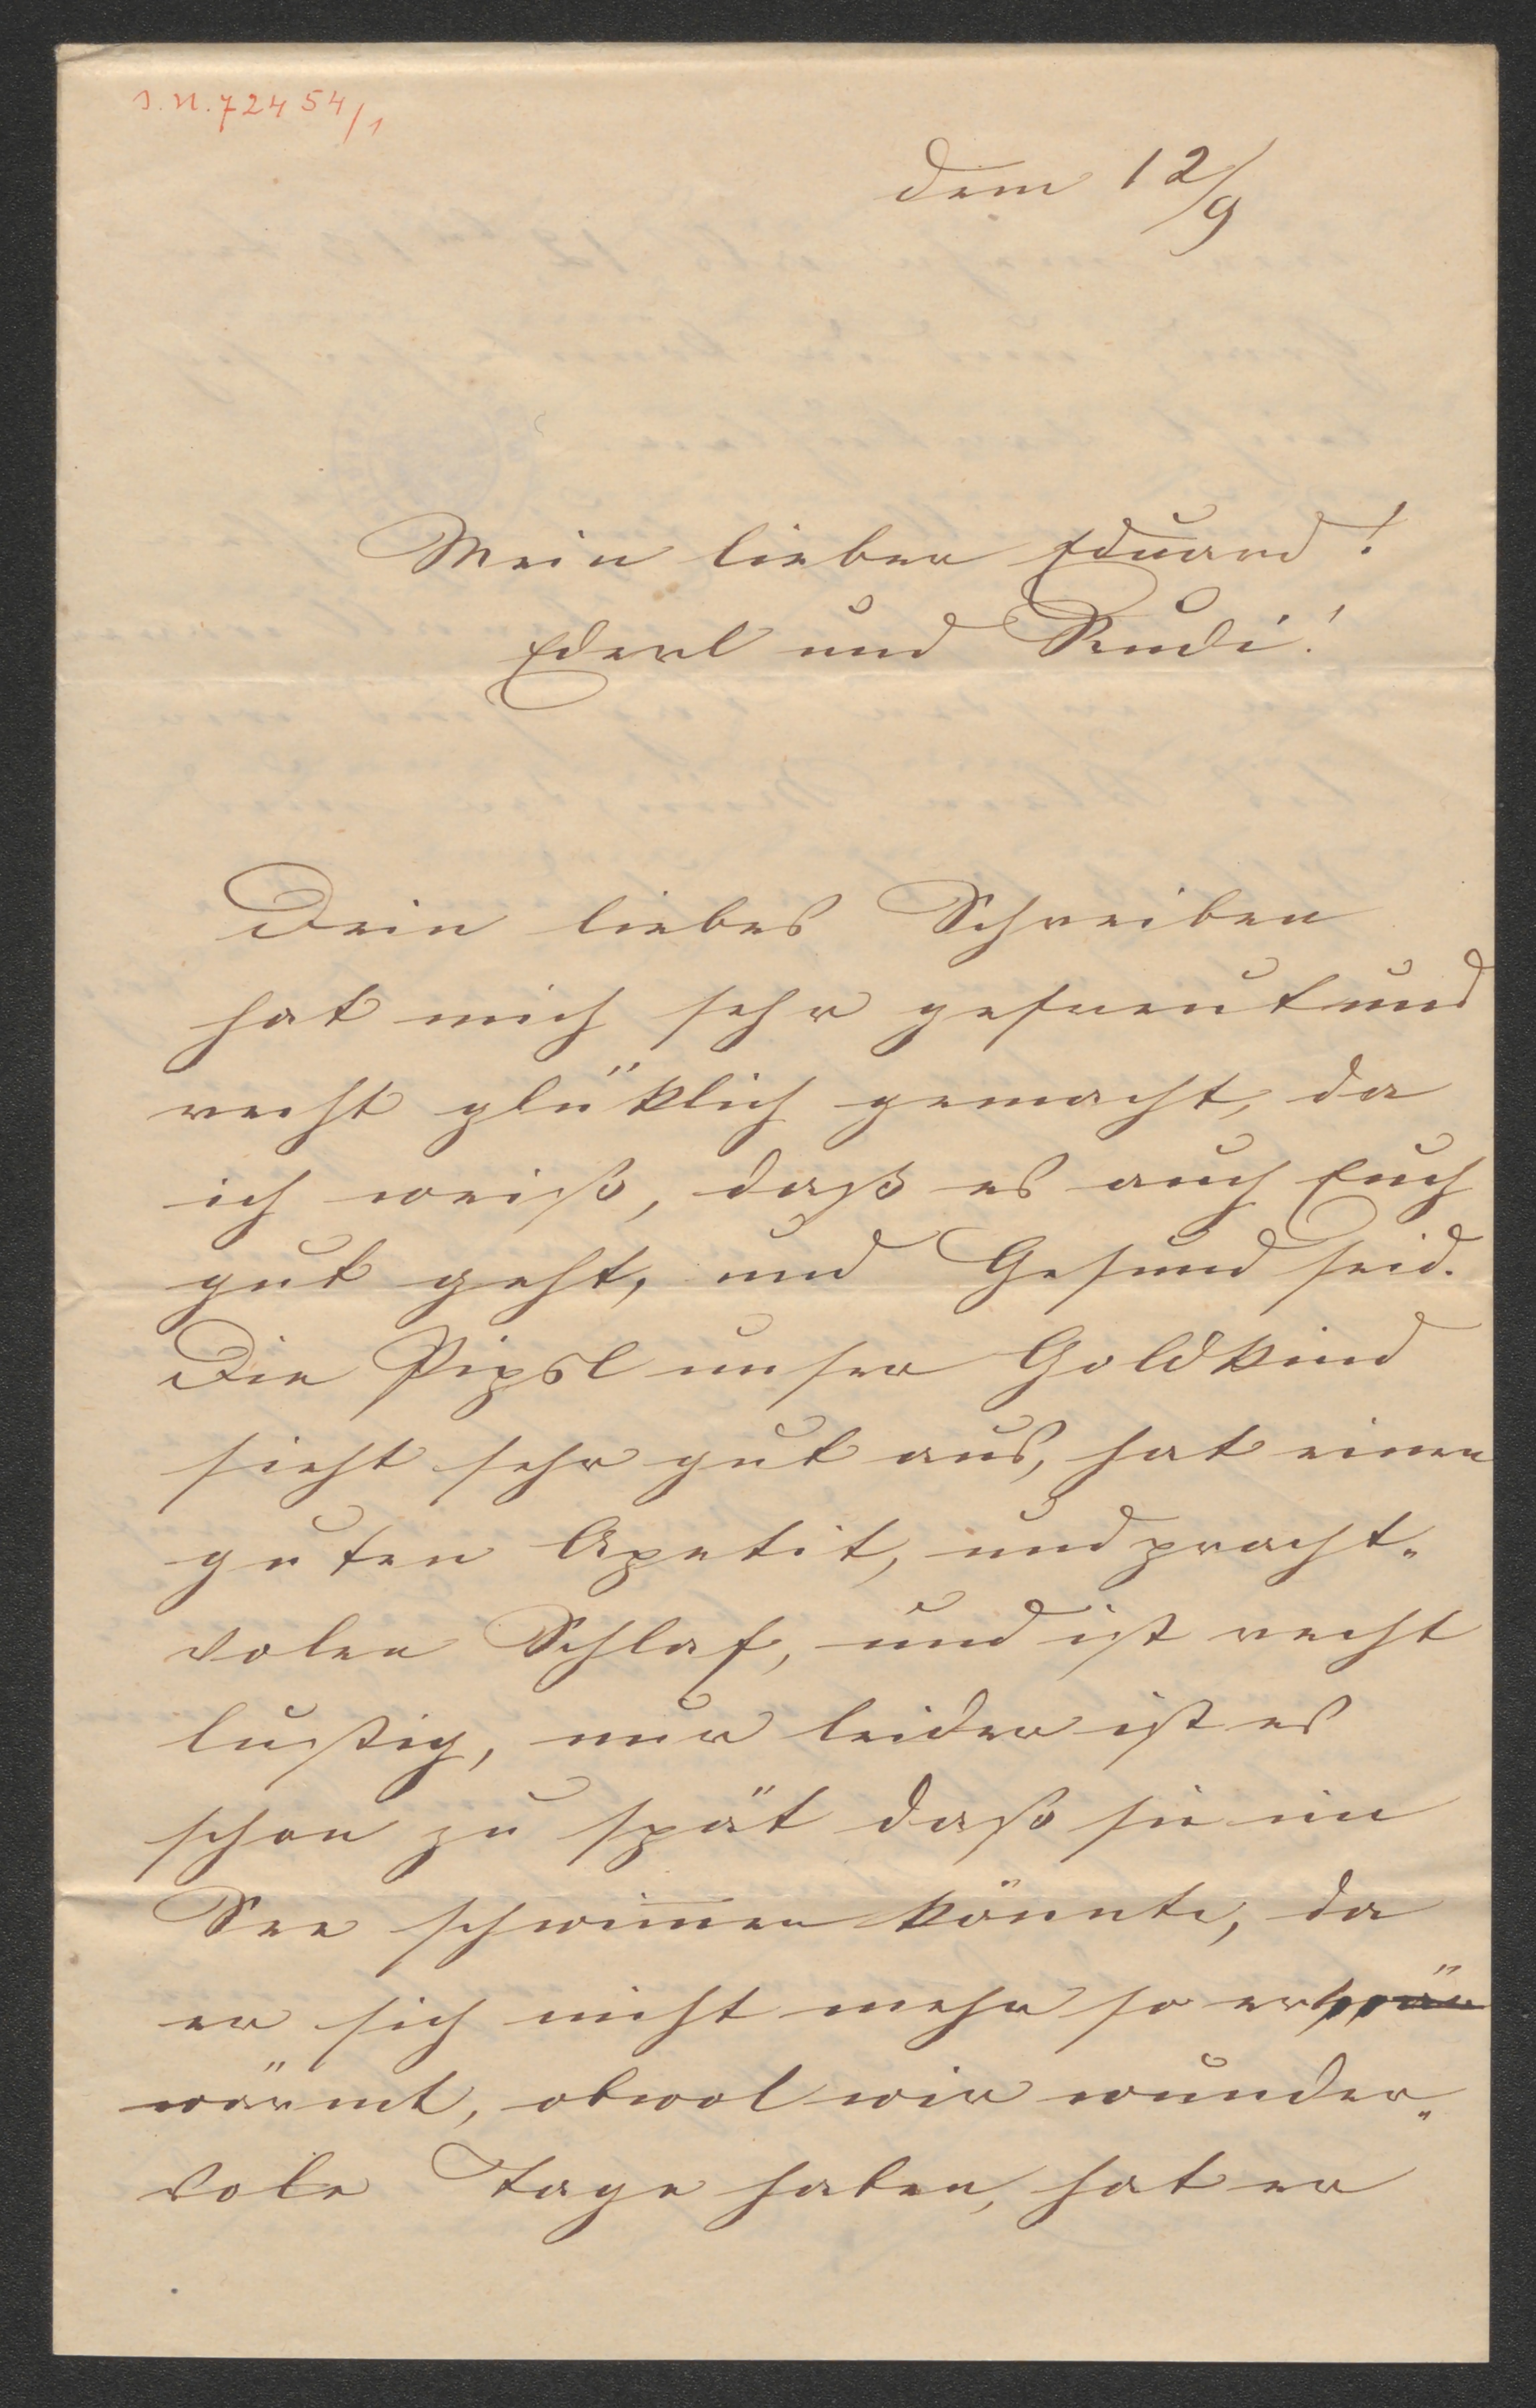 J.N. 72454/1
dem 12/9
Mein lieber Eduard!
Ederl und Rudi!
Dein liebes Schreiben
hat mich sehr gefreut und
recht glüklich gemacht, da
ich weiß, daß es auch Euch
gut geht, und Gesund seid.
Die Pipsl unser Goldkind
sieht sehr gut aus, hat einen
guten Apetit, und pracht„
volen Schlaf, und ist recht
lustig, nur leider ist es
schon zu spät daß sie im
See schwim̄en könnte, da
er sich nicht mehr so er
wärmt, obwol wir wunder„
vole Tage haben, hat er